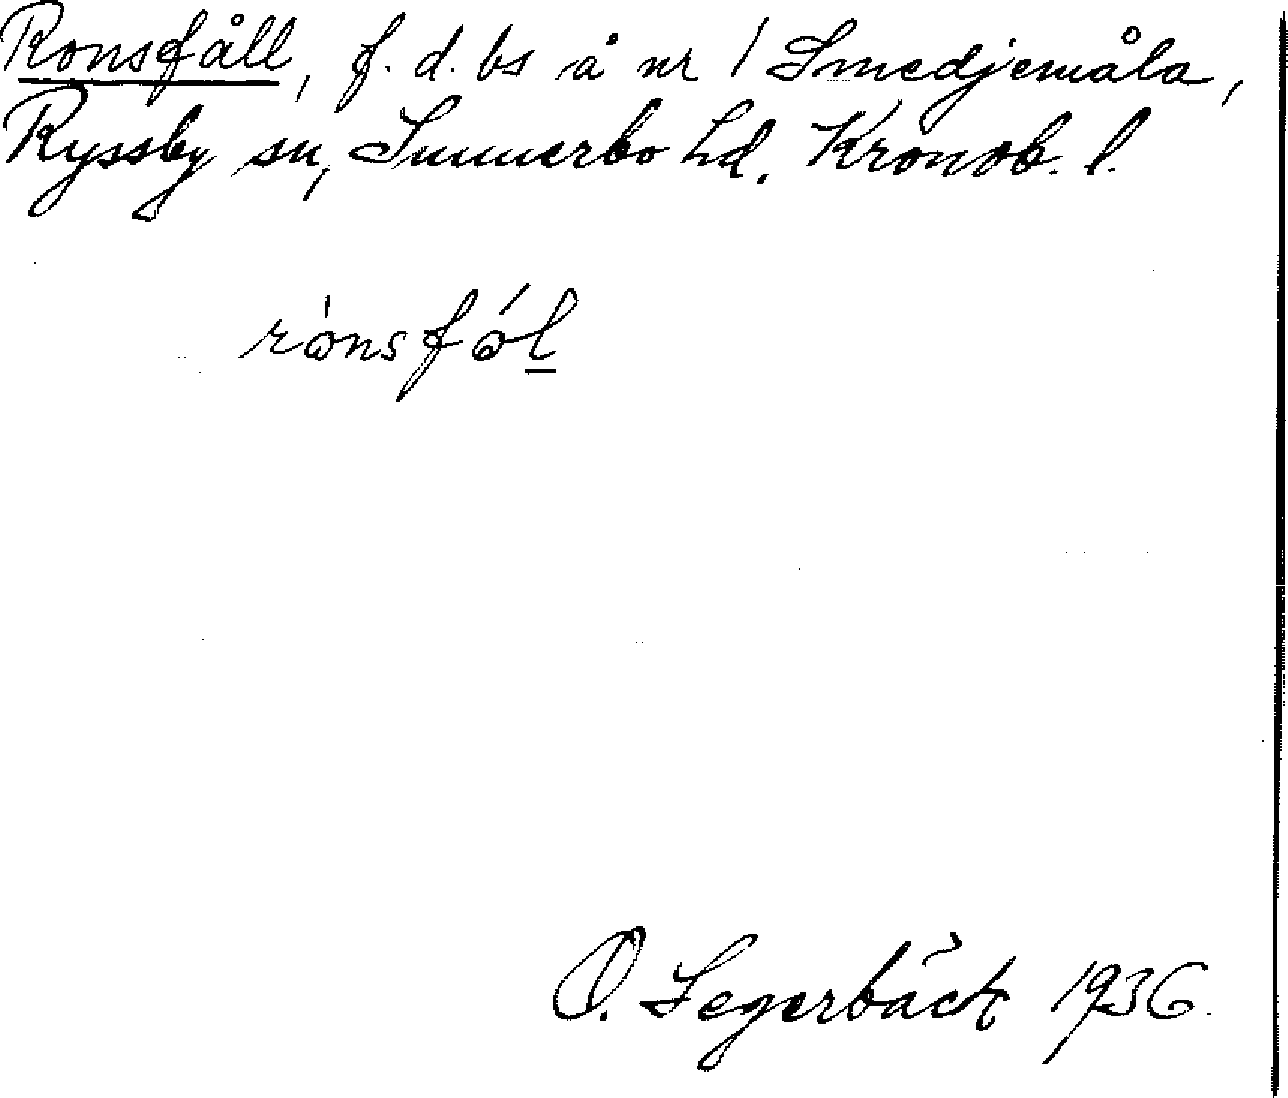 Ronsfåll, f. d. bs å nr 1 Smedjemåla,
Ryssby sn, Sunnerbo hd. Kronob. l.
rònsfó̱l
O. Segerbäck 1936.